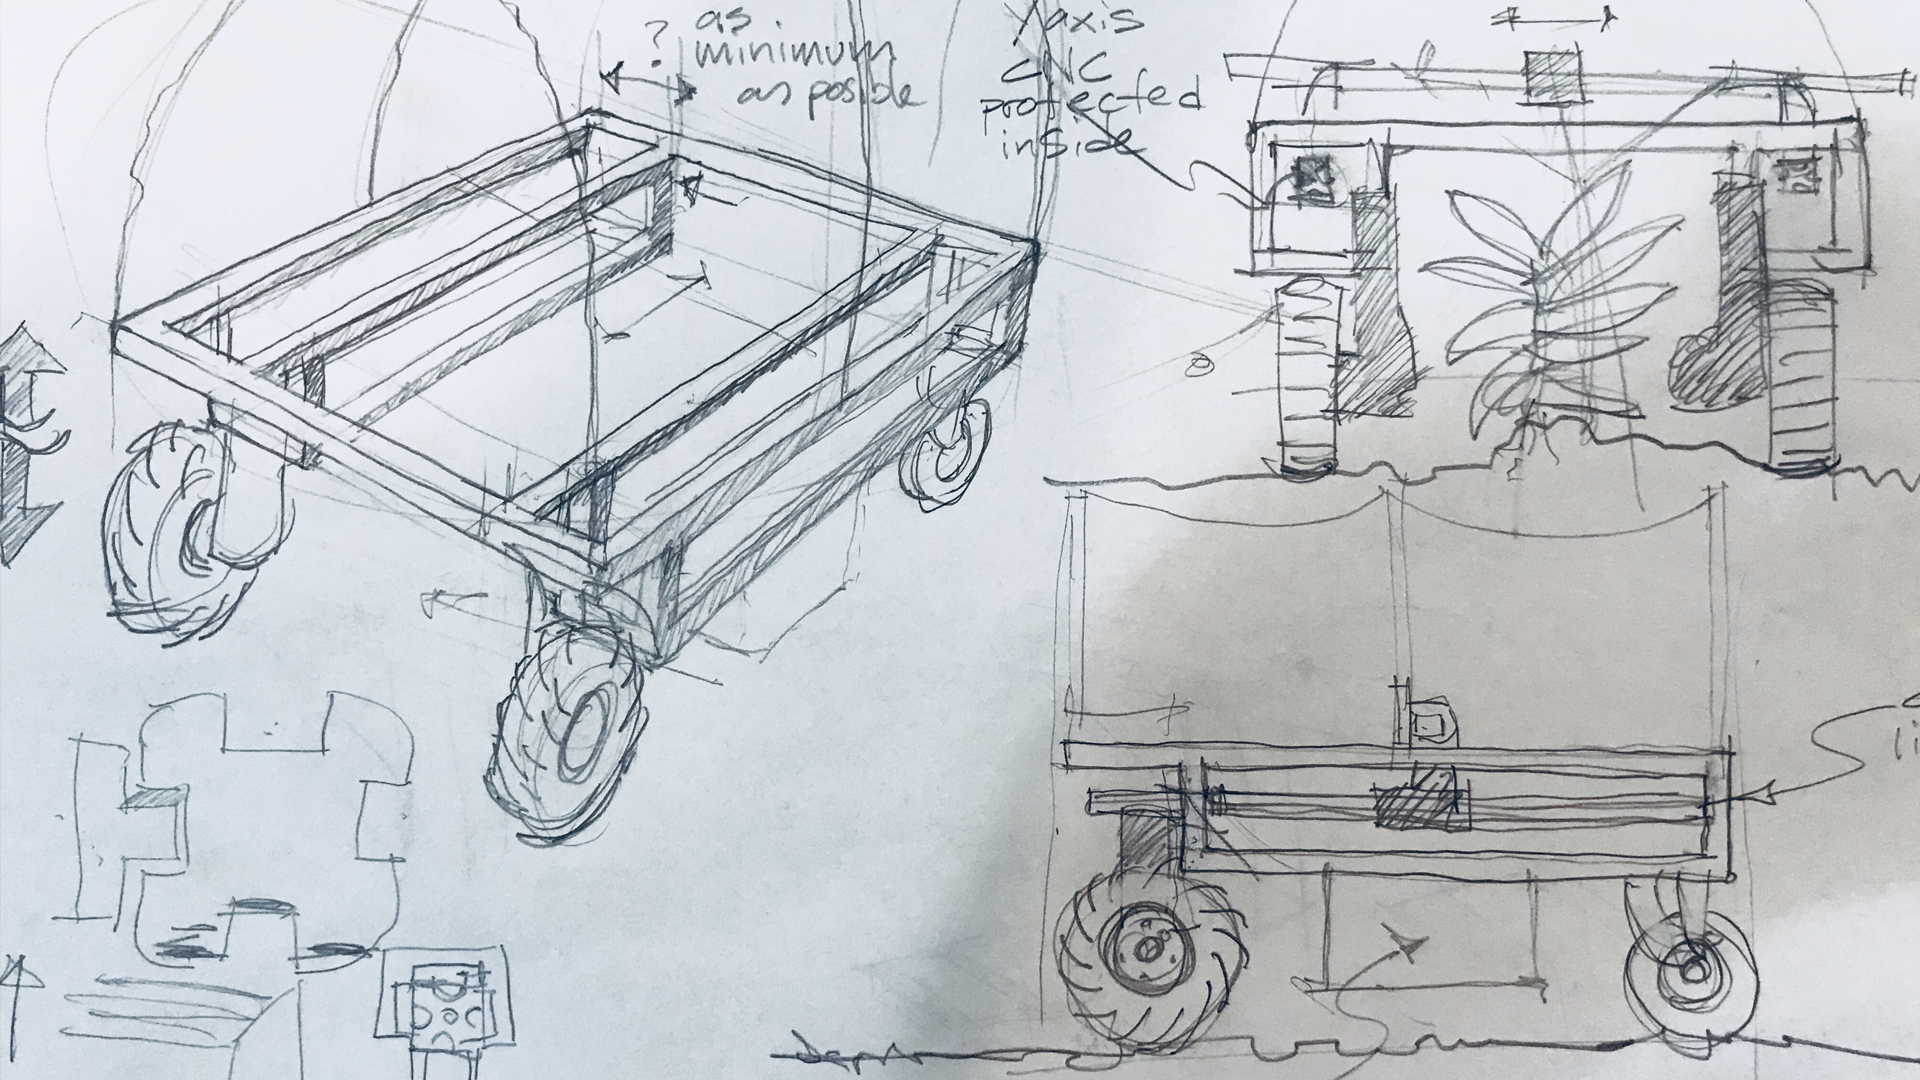 ? as
minimum
as posible
Yaxis
CNC
protected
inside